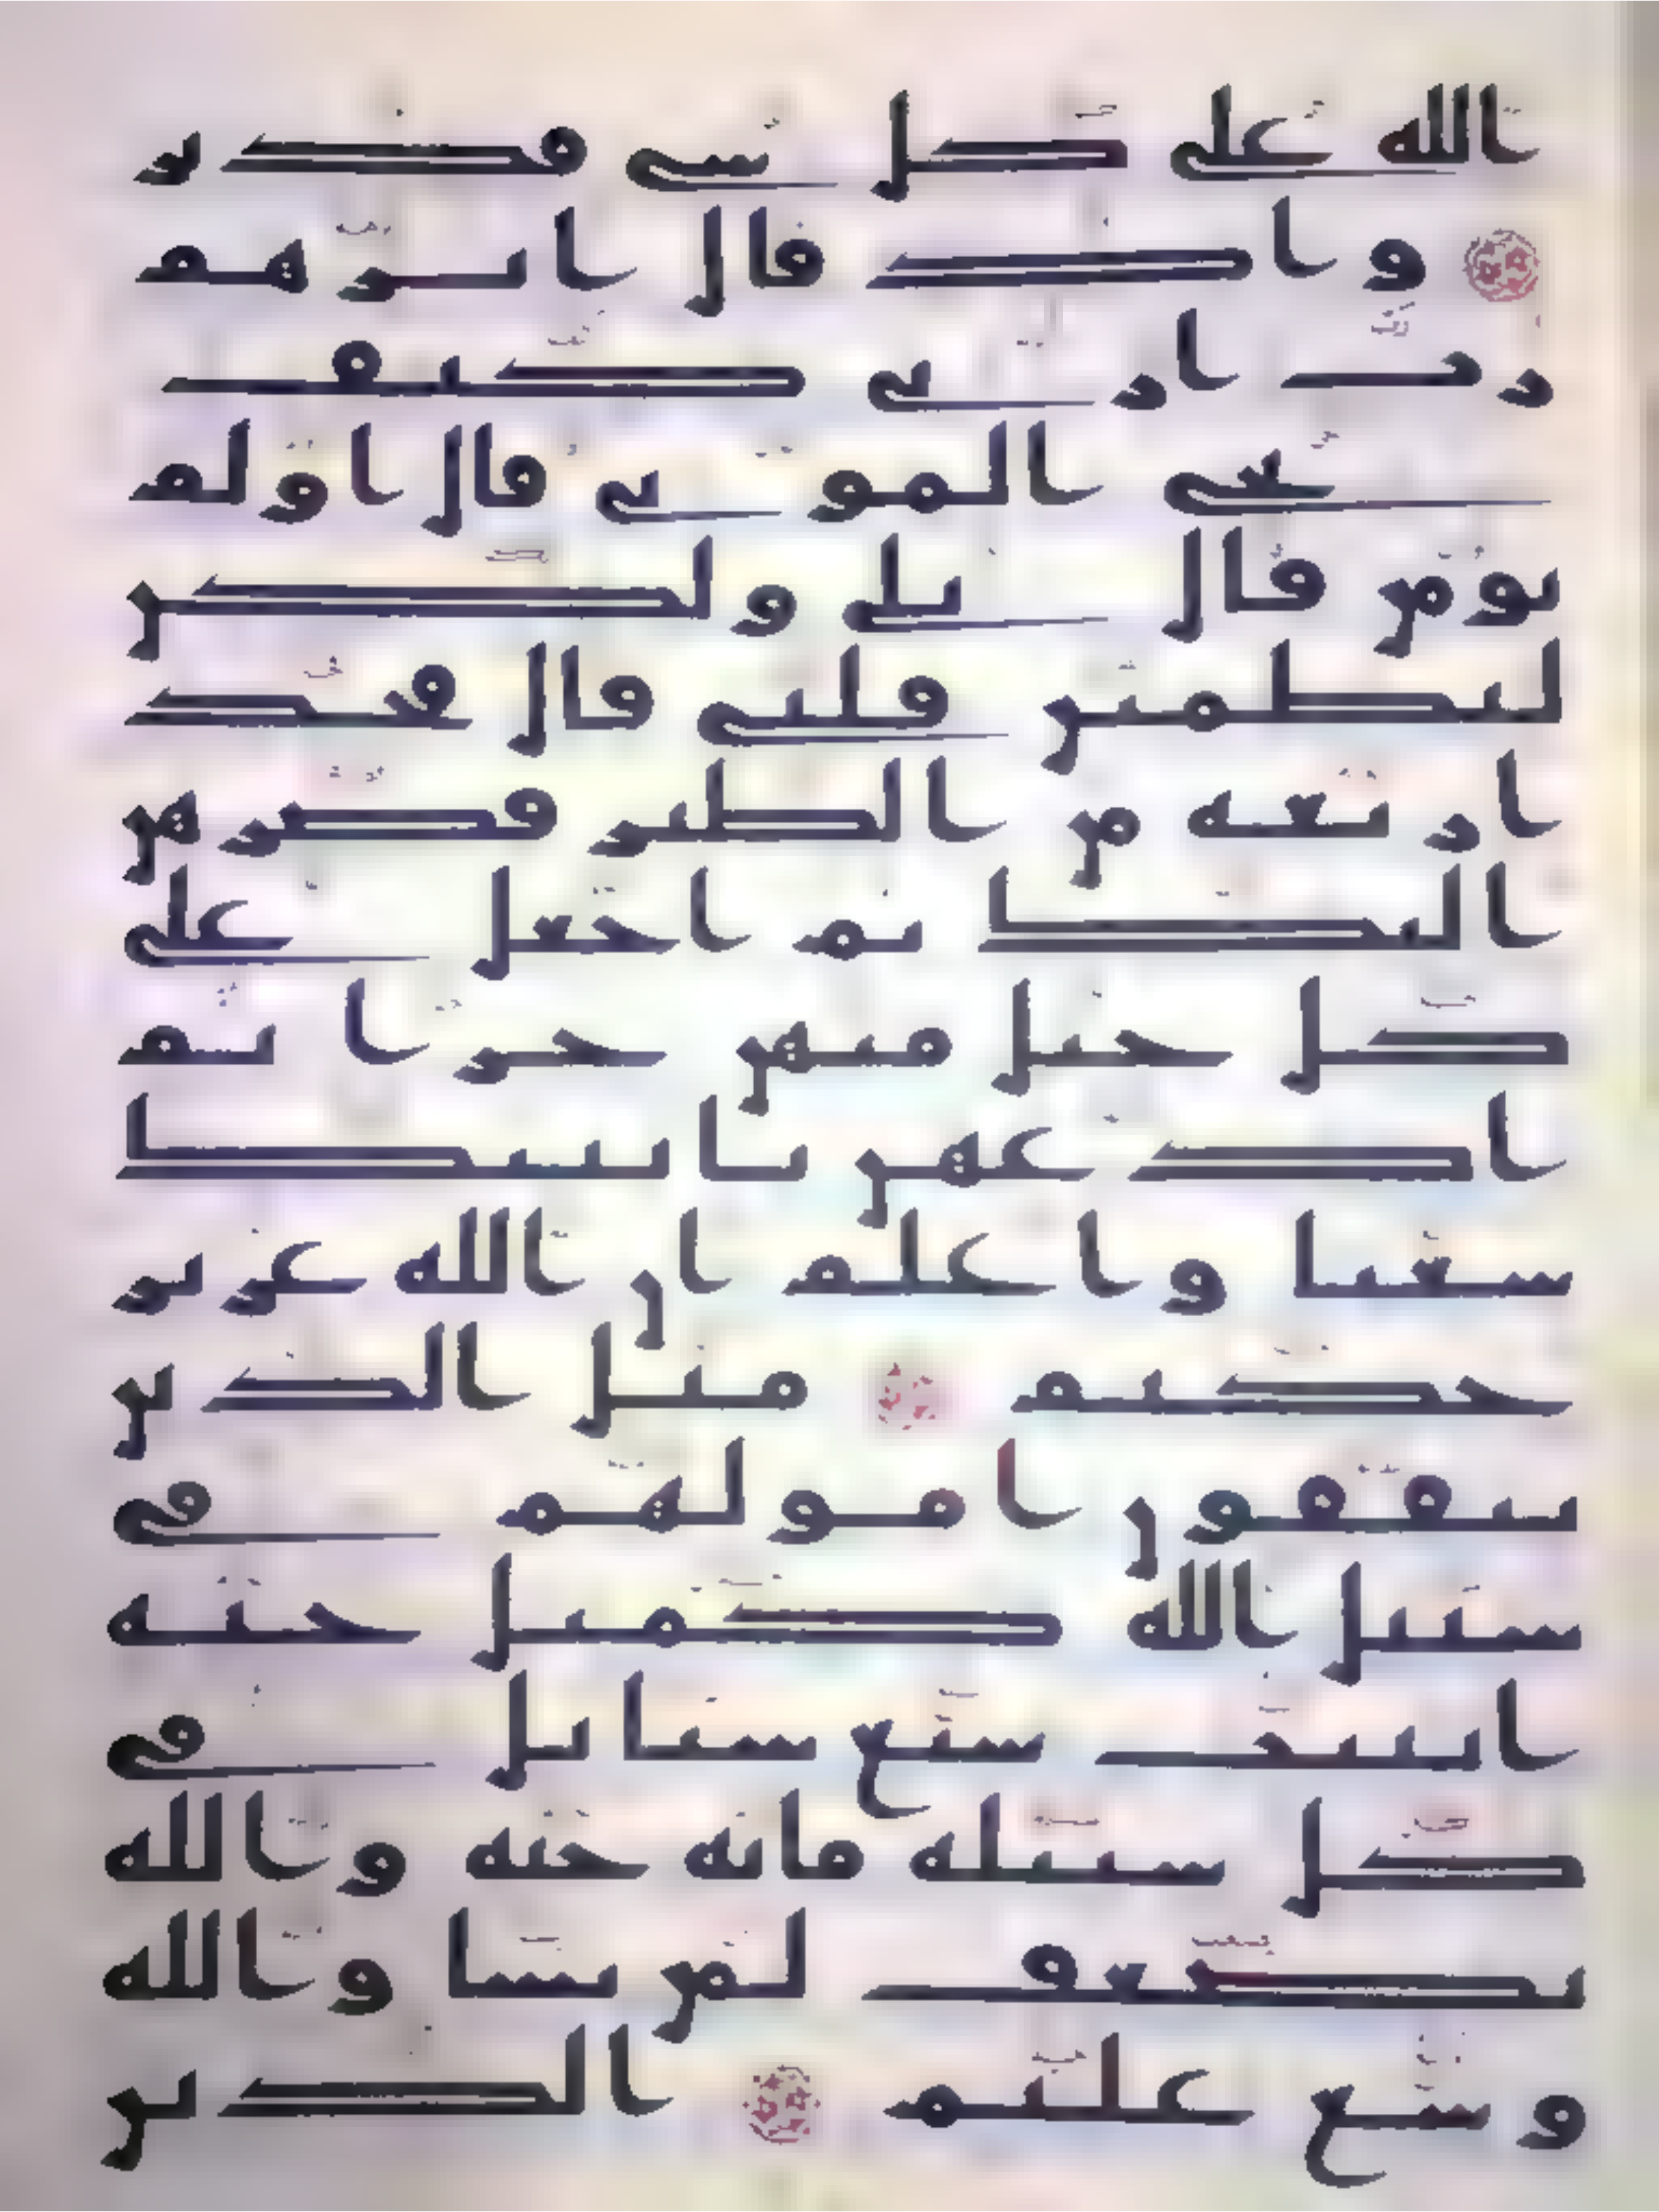 الله على كل شى قدير
واذ قال ابرهم
رب ارنى كيف
تحى الموتى قال اولم
تومن قال بلى ولكن
ليطمئن قلبى قال فخذ
اربعة من الطير فصرهن
اليك ثم اجعل على
كل جبل منهن جزا ثم
ادعهن ياتينك
سعيا واعلم ان الله عزيز
حكيم مثل الذين
ينفقون امولهم فى
سبيل الله كمثل حبة
انبتت سبع سنابل فى
كل سنبلة مائة حبة والله
يضعف لمن يشا والله
وسع عليم الذين